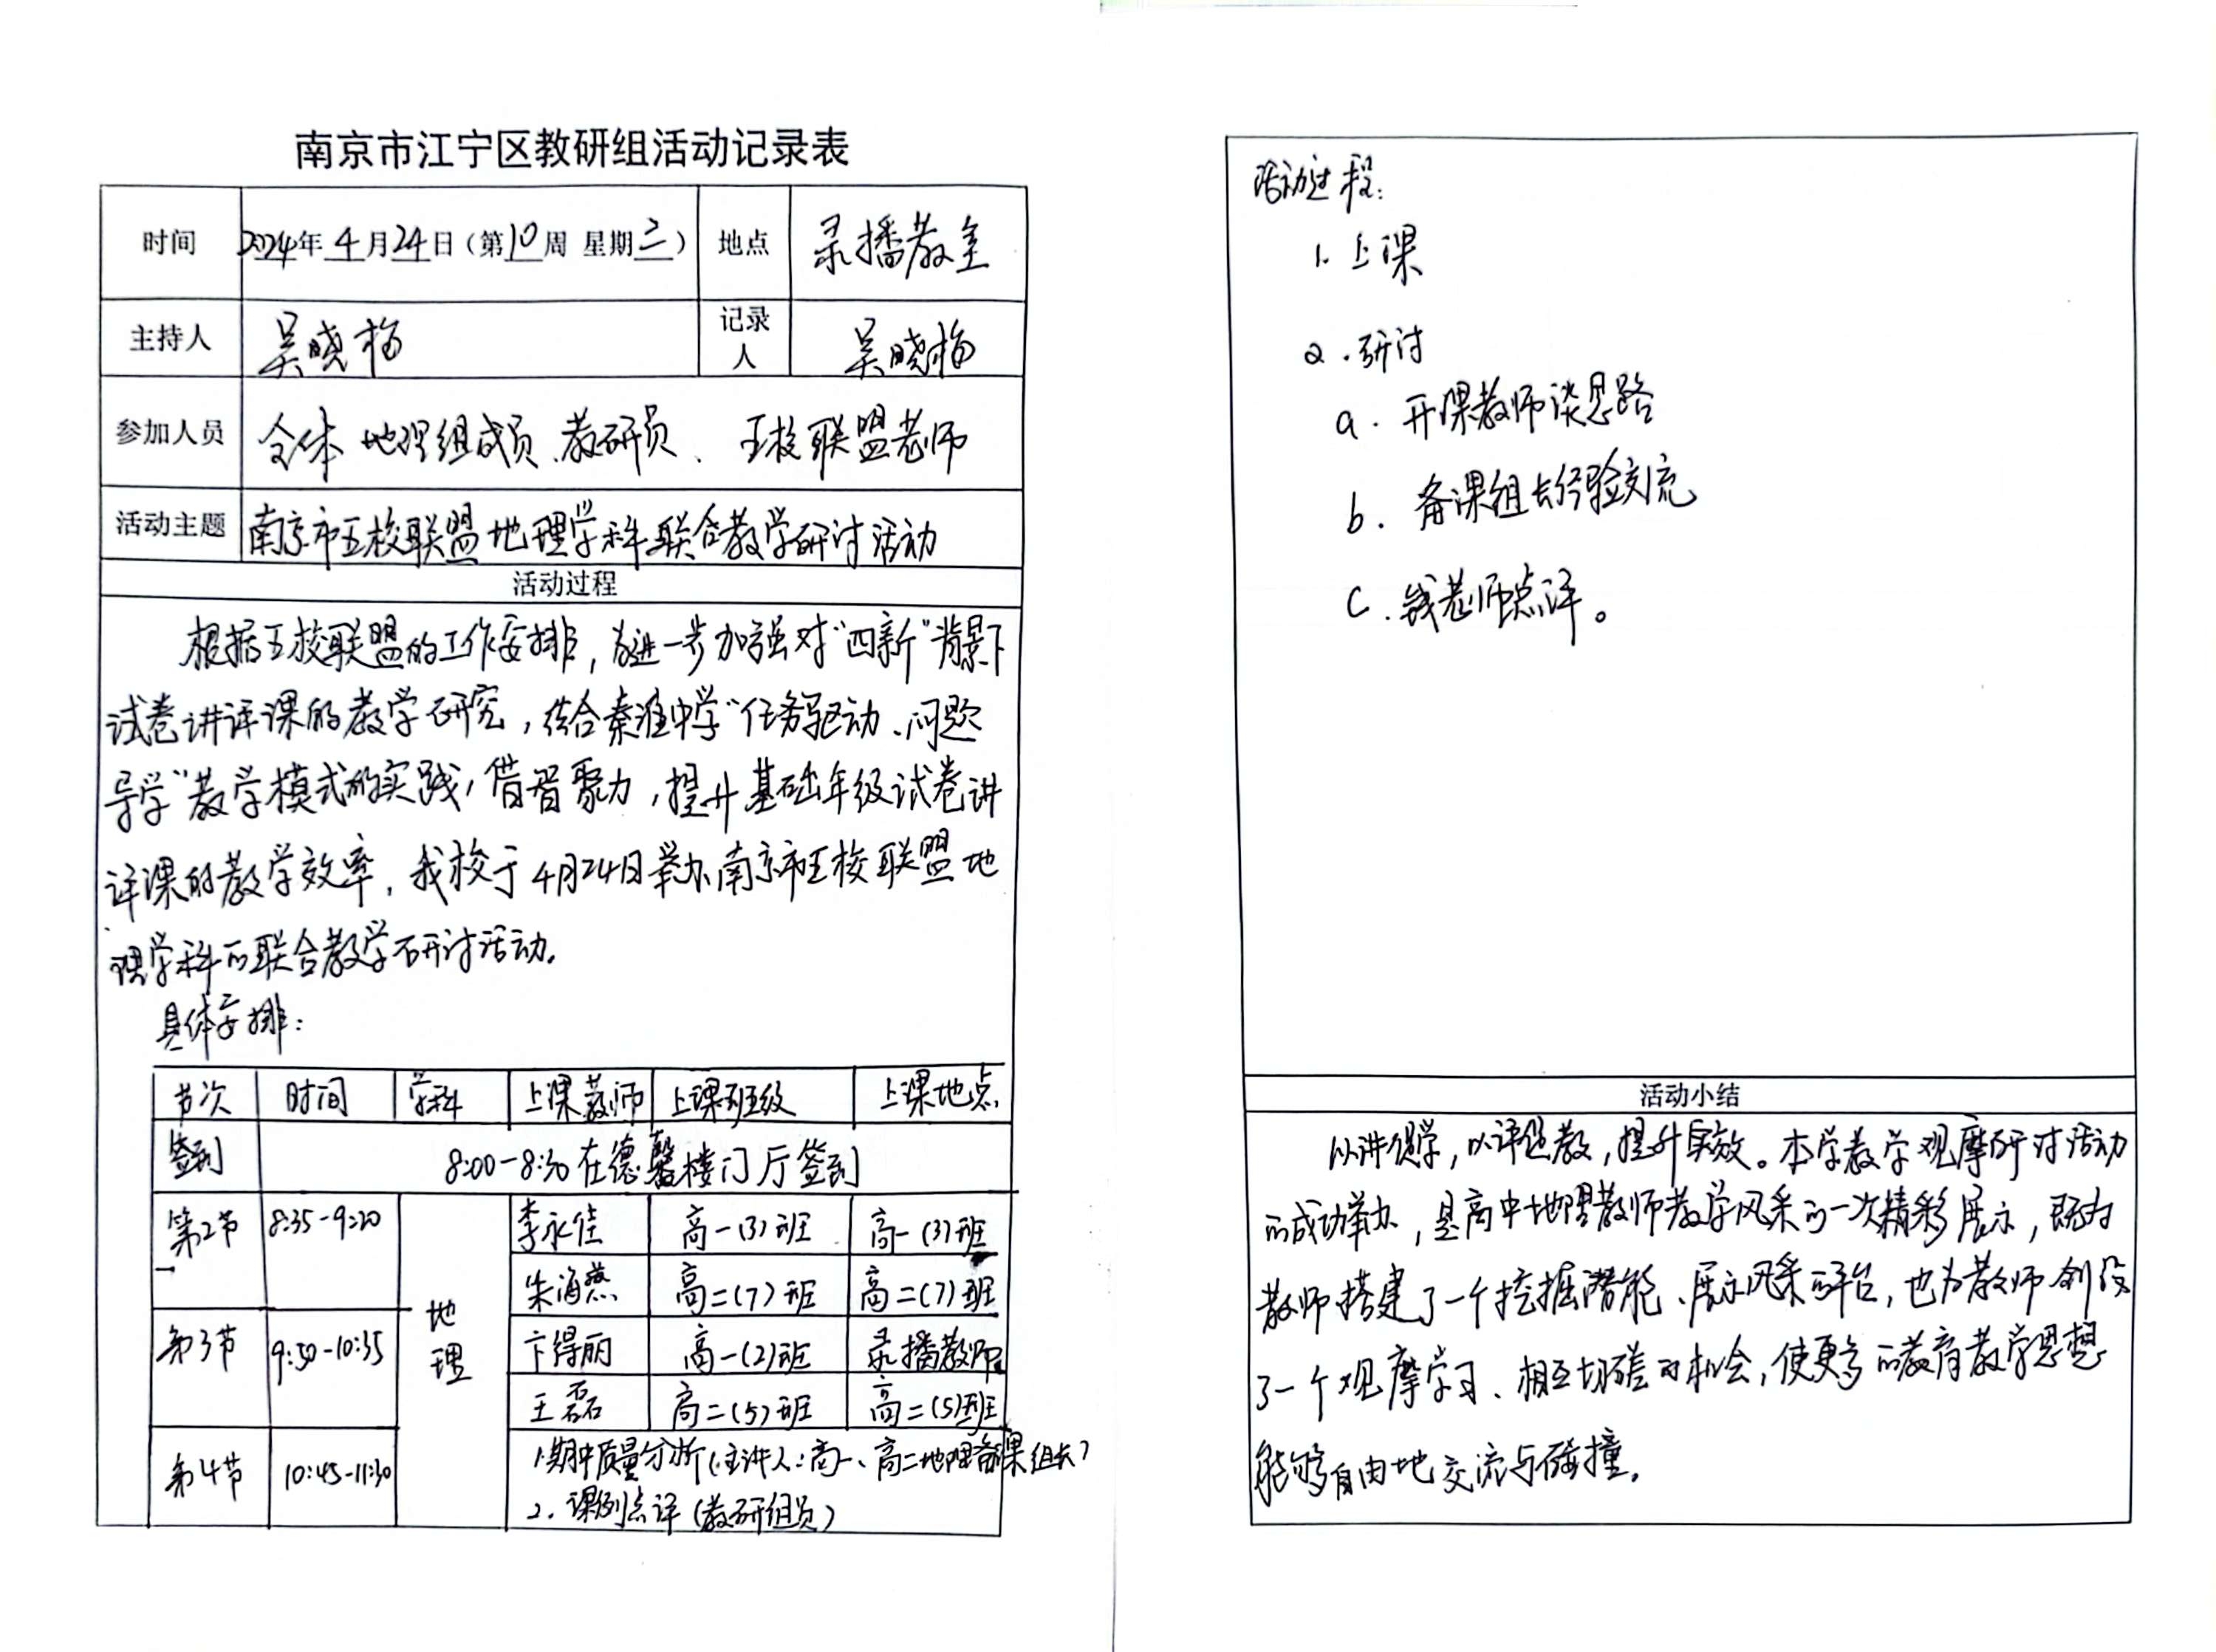 南京市江宁区教研组活动记录表
时间 2024年 4 月 24 日（第 10 周 星期 三） 地点 录播教室
主持人 吴晓梅 记录人 吴晓梅
参加人员 全体地理组成员、教研员、五校联盟老师
活动主题 南京市五校联盟地理学科联合教学研讨活动
活动过程
根据五校联盟的工作安排，为进一步加强对“四新”背景下
试卷讲评课的教学研究，结合秦淮中学“任务驱动、问题
导学”教学模式的实践，借智聚力，提升基础年级试卷讲
评课的教学效率，我校于4月24日举办南京市五校联盟地
理学科的联合教学研讨活动。
具体安排：
节次 时间 学科 上课教师 上课班级 上课地点
签到 8:00-8:30在德馨楼门厅签到
第2节 8:35-9:20 地理 李永佳 高一(3)班 高一(3)班
朱海燕 高二(7)班 高二(7)班
第3节 9:50-10:35 卞得丽 高一(2)班 录播教师
王磊 高二(5)班 高二(5)班
第4节 10:45-11:30 1.期中质量分析（主讲人：高一、高二地理备课组长）
2.课例点评（教研组员）
活动过程：
1.上课
2.研讨
a.开课教师谈思路
b.备课组长经验交流
c.钱老师点评。
活动小结
以讲促学，以评促教，提升实效。本学教学观摩研讨活动
的成功举办，是高中地理教师教学风采的一次精彩展示，既为
教师搭建了一个挖掘潜能、展示风采的平台，也为教师创设
了一个观摩学习、相互切磋的机会，使更多的教育教学思想
能够自由地交流与碰撞。